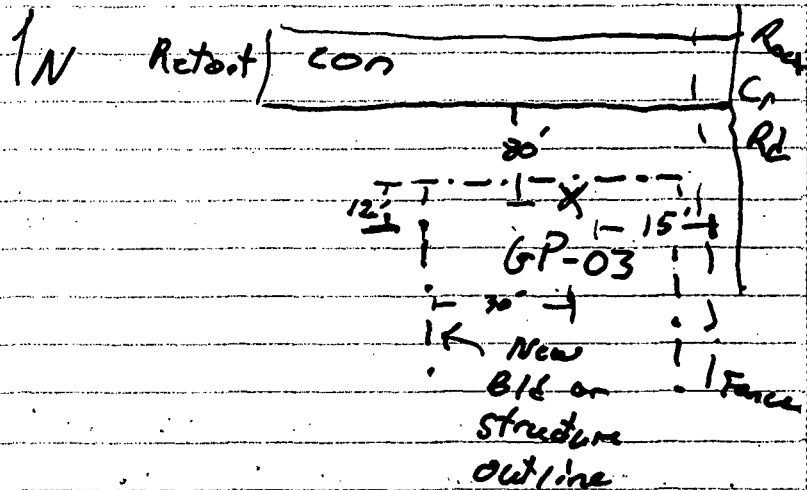 N Retort con Rock
Cr
Rd
80'
12' X
15'
GP-03
30'
New
Bld or
structure
outline
Fence